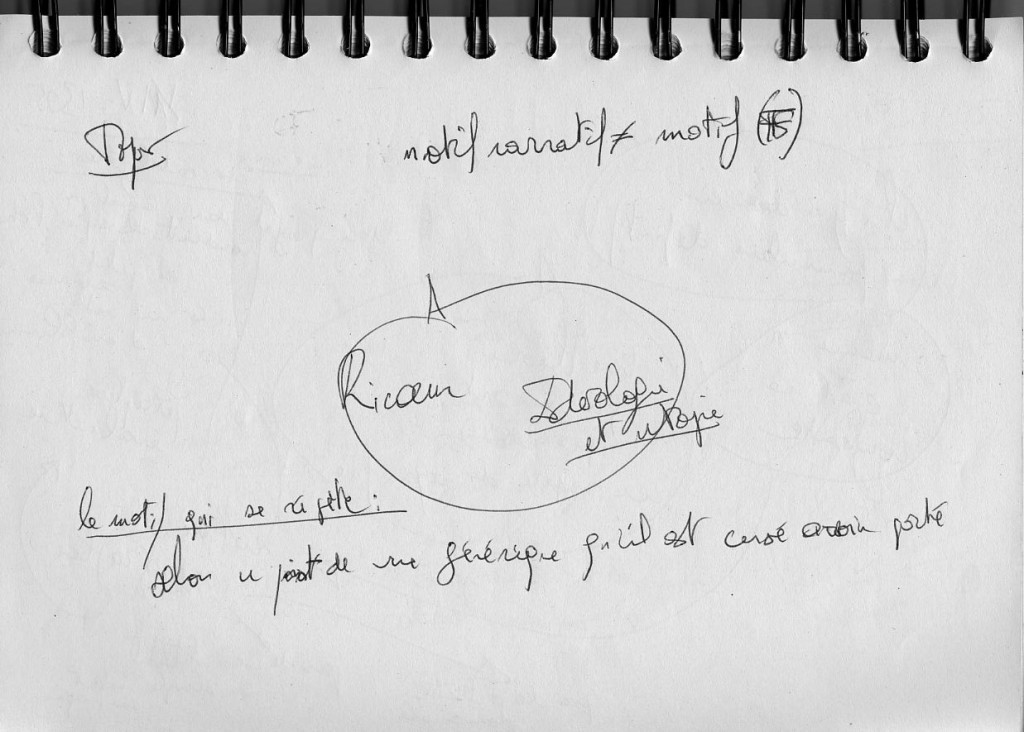 motif narratif ≠ motif
A
Ricœur
Idéologie
et utopie
le motif qui se répète :
selon un point de vue générique qu'il est censé avoir porté